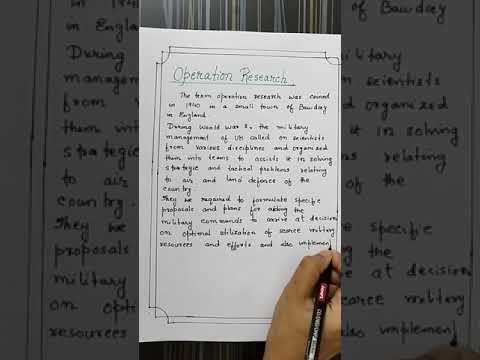 Operation Research
The term operation research was coined
in 1940 in a small town of Bawday
in England
During would war 2, the military
management of UK called on scientists
from various disciplines and organized
them into teams to assists it in solving
strategic and tactical problems relating
to air and land defence of the
country.
They we required to formulate specific
proposals and plans for aiding the
military commands to arrive at decision
on optimal utilization of scarce military
resources and efforts and also implemen